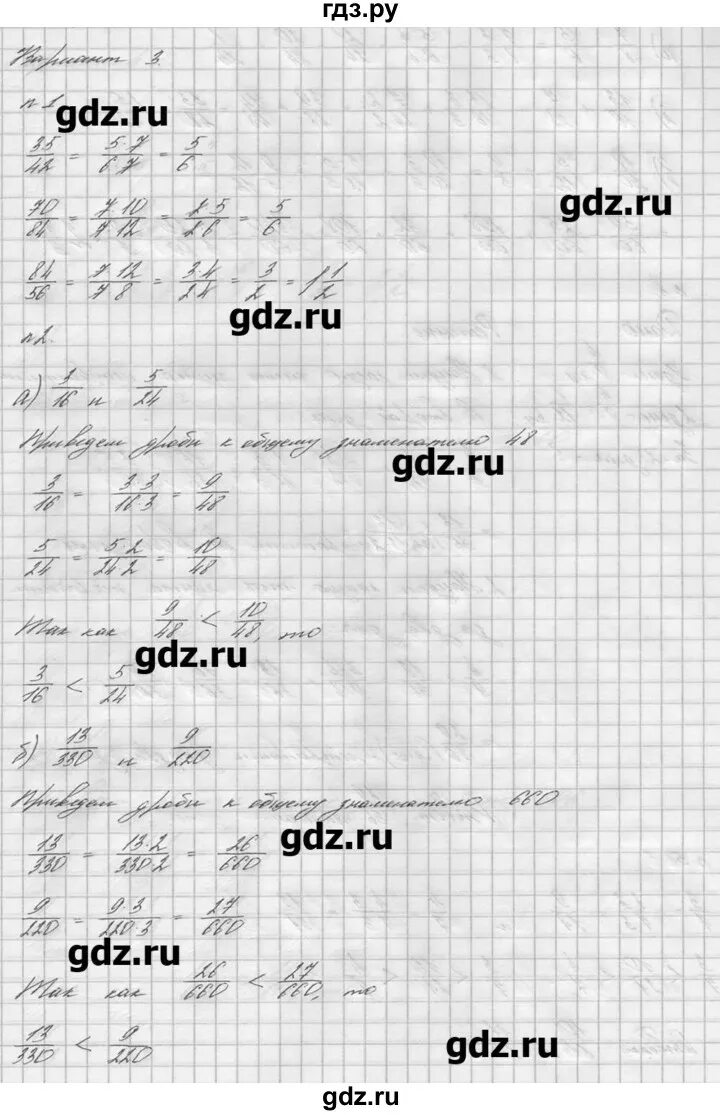 гдз.ру
Вариант 3.
n 1
gdz.ru
35/42 = 5·7/6·7 = 5/6
gdz.ru
70/84 = 7·10/7·12 = 2·5/2·6 = 5/6
84/56 = 7·12/7·8 = 3·4/2·4 = 3/2 = 1 1/2
gdz.ru
n 2.
а) 3/16 и 5/24
Приведем дроби к общему знаменателю 48
gdz.ru
3/16 = 3·3/16·3 = 9/48
5/24 = 5·2/24·2 = 10/48
Так как 9/48 < 10/48, то
gdz.ru
3/16 < 5/24
б) 13/330 и 9/220
Приведем дроби к общему знаменателю 660
gdz.ru
13/330 = 13·2/330·2 = 26/660
9/220 = 9·3/220·3 = 27/660
gdz.ru
Так как 26/660 < 27/660, то
13/330 < 9/220
gdz.ru
gdz.ru